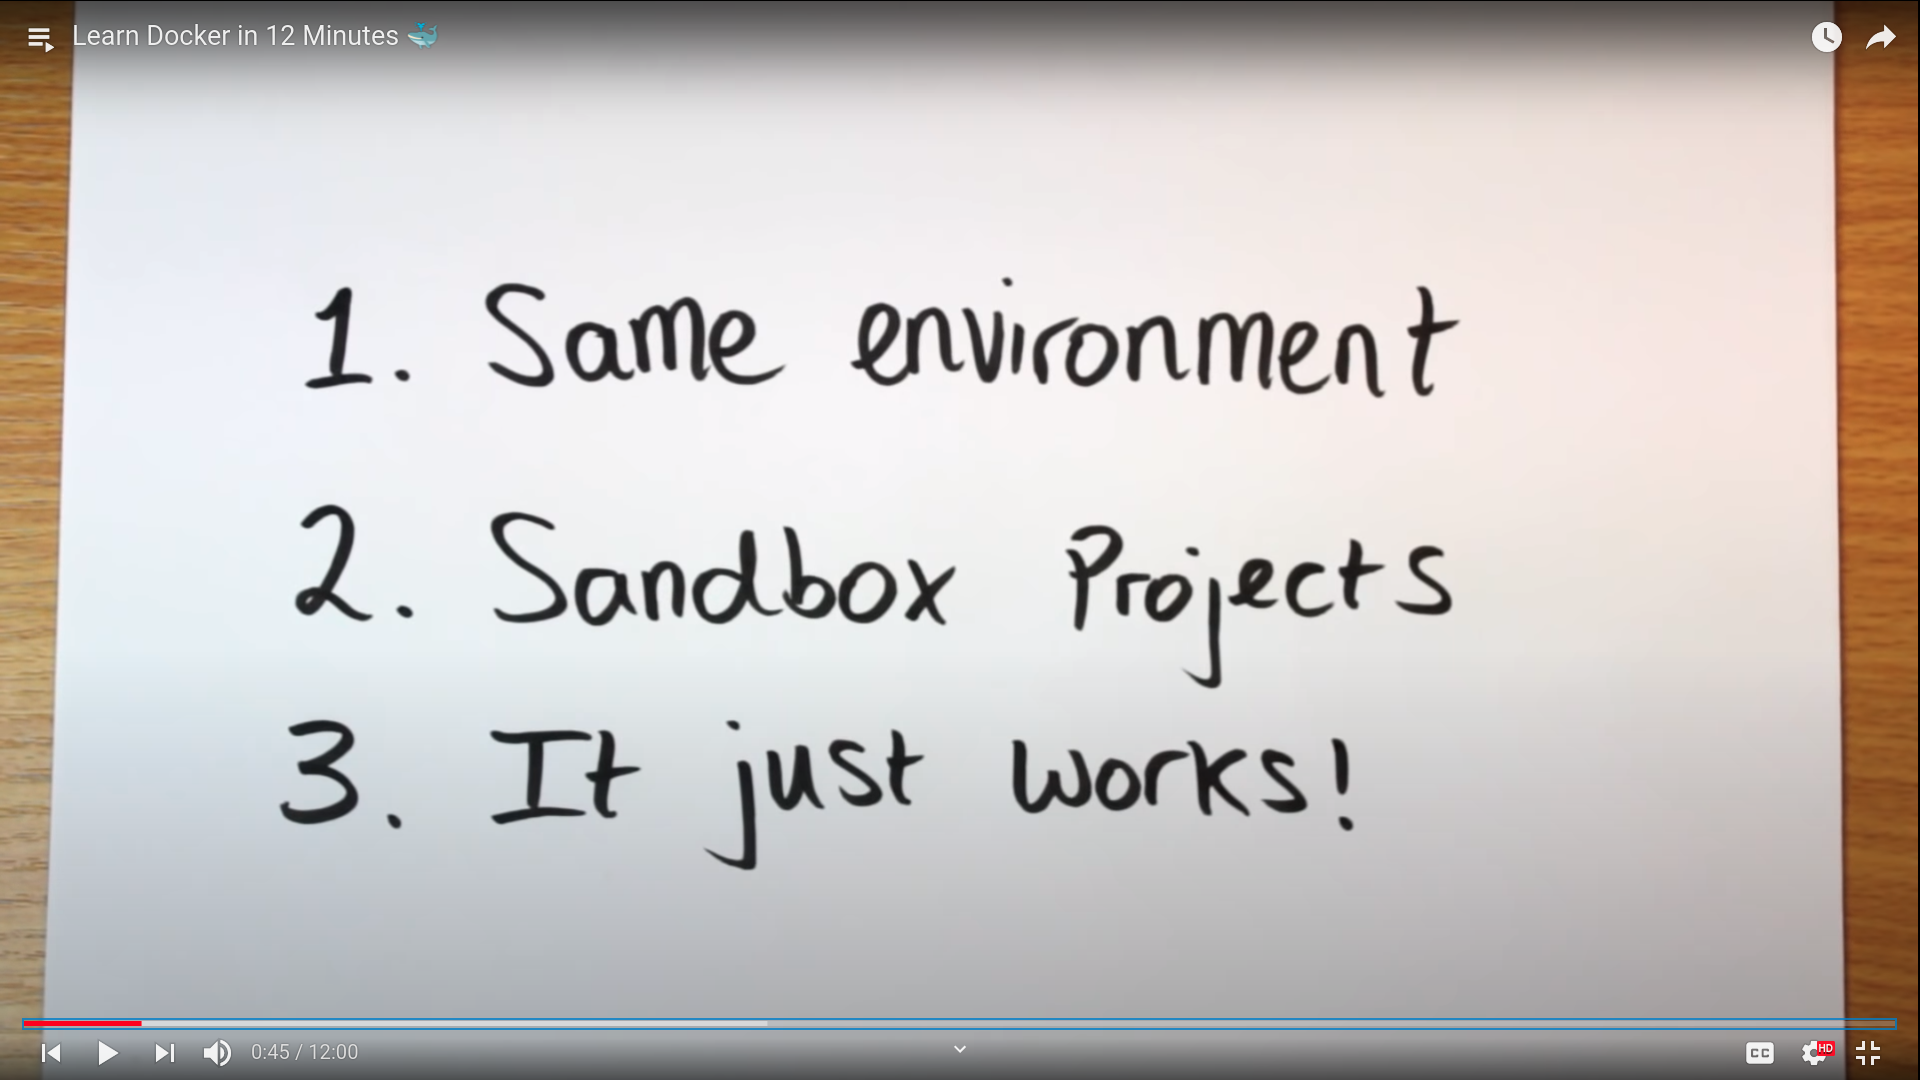 Learn Docker in 12 Minutes 🐳
1. Same environment
2. Sandbox Projects
3. It just works!
0:45 / 12:00
CC
HD